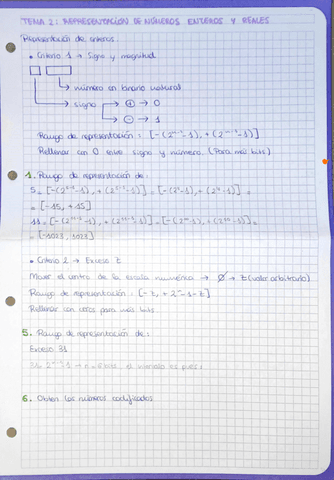 TEMA 2: REPRESENTACIÓN DE NÚMEROS ENTEROS Y REALES
Representación de enteros:
• Criterio 1 → Signo y magnitud
número en binario natural
signo → ⊕ → 0
⊖ → 1
Rango de representación: [-(2ⁿ⁻¹-1), +(2ⁿ⁻¹-1)]
Rellenar con 0 entre signo y número. (Para más bits)
1. Rango de representación de:
5 = [-(2⁵⁻¹-1), +(2⁵⁻¹-1)] = [-(2⁴-1), +(2⁴-1)] =
= [-15, +15]
11 = [-(2¹¹⁻¹-1), +(2¹¹⁻¹-1)] = [-(2¹⁰-1), +(2¹⁰-1)] =
= [-1023, 1023]
• Criterio 2 → Exceso Z
Mover el centro de la escala numérica → Ø → Z (valor arbitrario)
Rango de representación: [-Z, +2ⁿ-1-Z]
Rellenar con ceros para más bits
5. Rango de representación de:
Exceso 31
el intervalo es
6. Obtén los números codificados